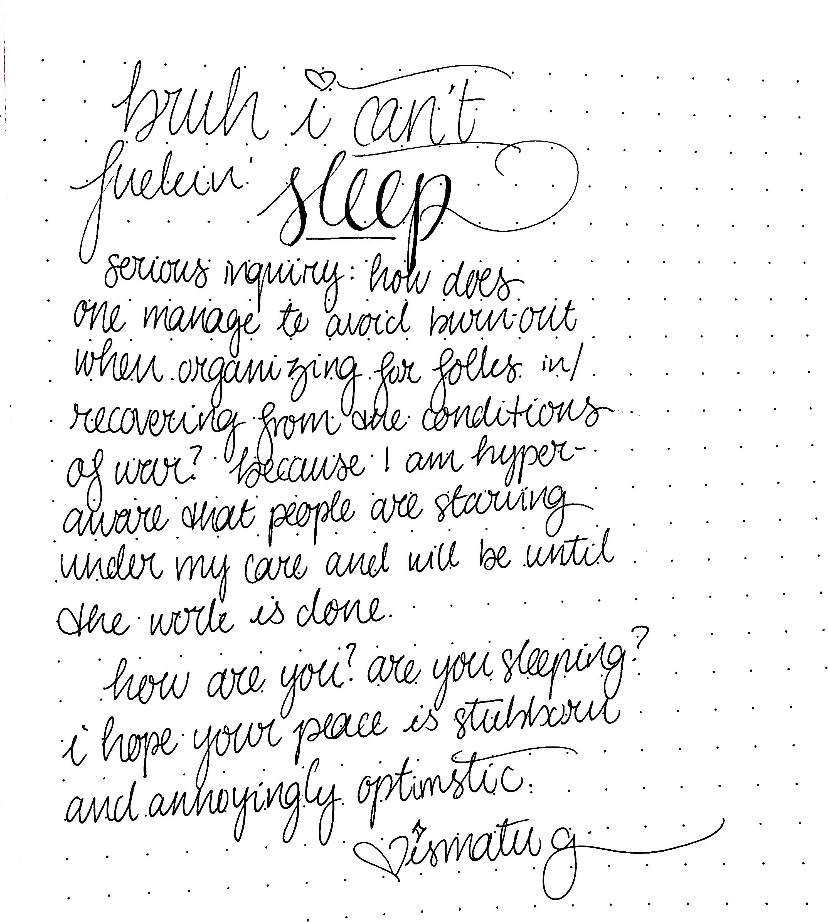 bruh i can't
fuckin' sleep
serious inquiry: how does
one manage to avoid burn-out
when organizing for folks in/
recovering from the conditions
of war? because i am hyper-
aware that people are starving
under my care and will be until
the work is done.
how are you? are you sleeping?
i hope your peace is stubborn
and annoyingly optimstic.
ismatu g